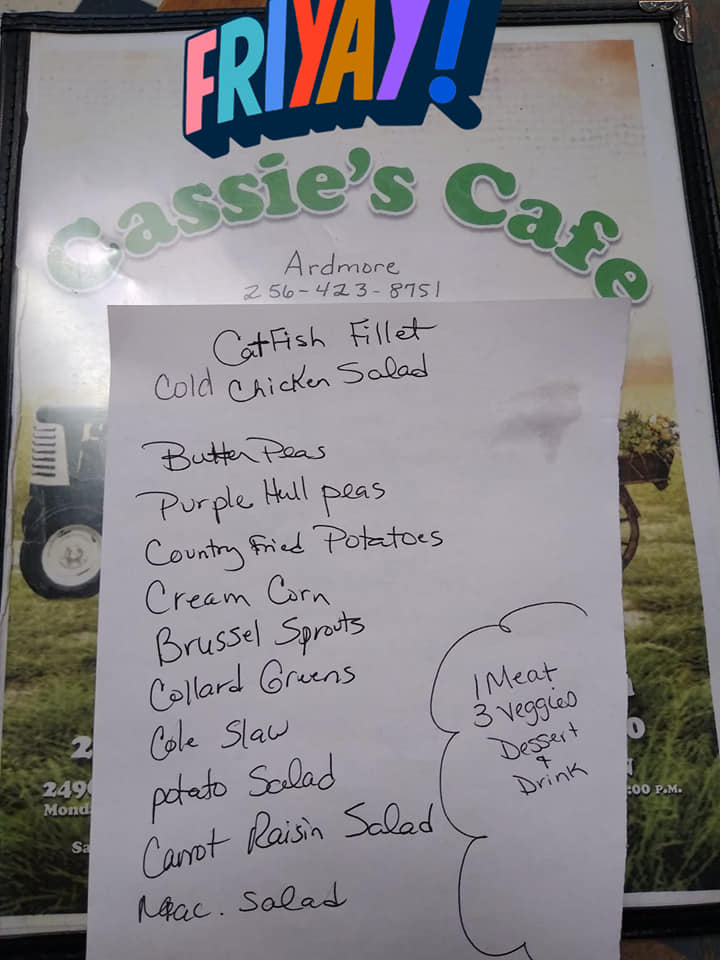 FRIYAY!
Cassie's Cafe
Ardmore
256-423-8751
CatFish Fillet
Cold Chicken Salad
Butter Peas
Purple Hull peas
Country Fried Potatoes
Cream Corn
Brussel Sprouts
Collard Greens
Cole Slaw
potato Salad
Carrot Raisin Salad
Mac. Salad
1 Meat
3 Veggies
Dessert
+
Drink
2
249
Mond
Sa
0
:00 P.M.